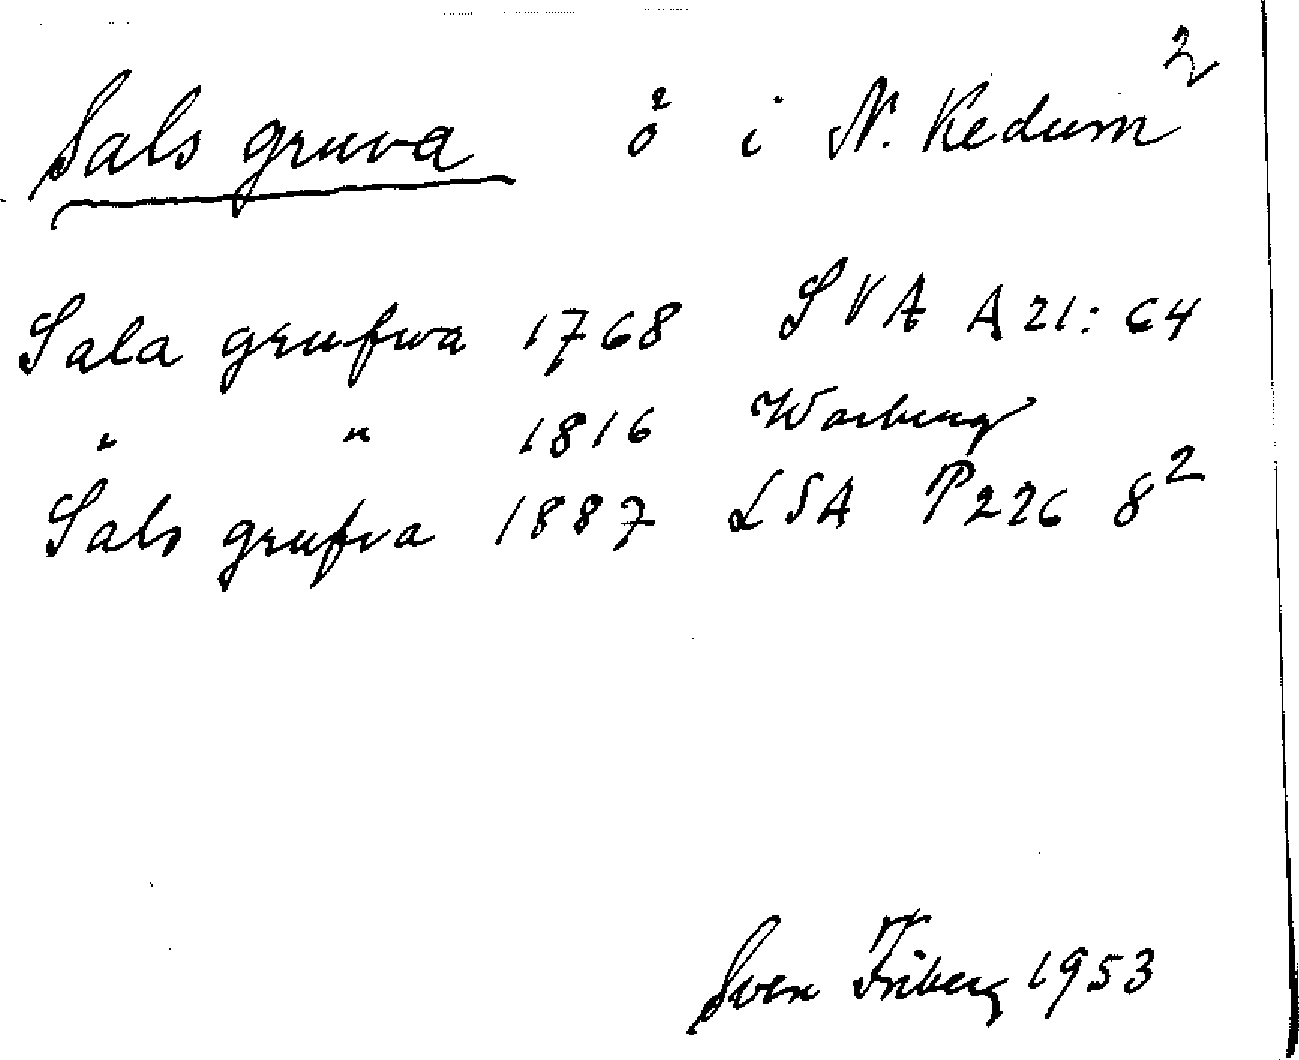 Sals gruva ö² i N. Kedum²
Sala grufwa 1768 SVA A 21: 64
" " 1816 Warberg
Sals grufva 1887 LSA P226 8²
Sven Friberg 1953